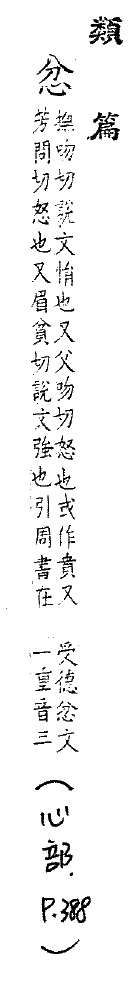 類篇
忿
撫吻切說文悁也又父吻切怒也或作賁又
芳問切怒也又眉貧切說文強也引周書在
受德忿文
一重音三
(心部.
P.388)